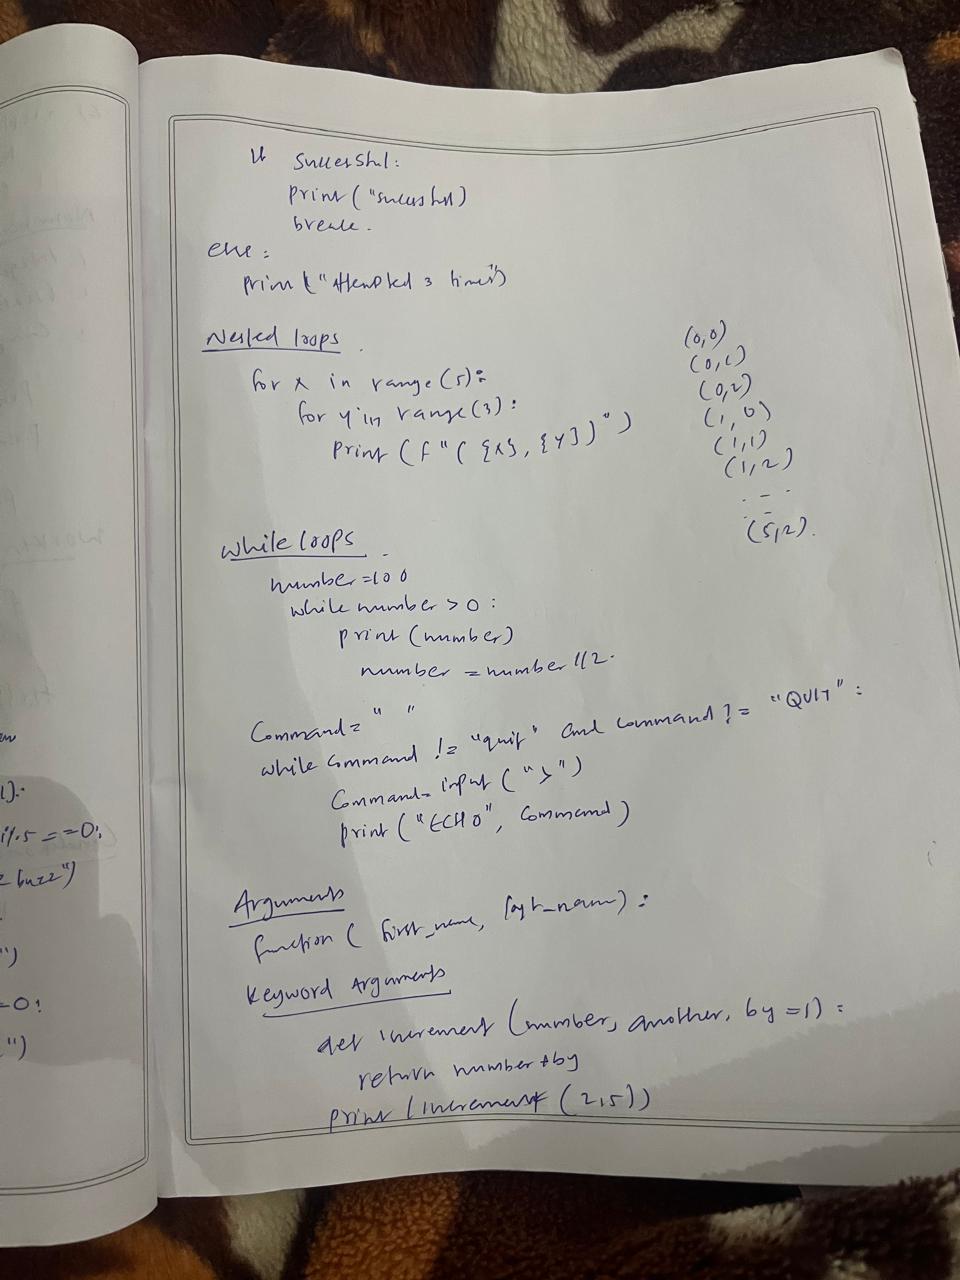 if successful:
print("successful)
break.
else:
print("Attempted 3 times")
Nested loops
for x in range(5):
for y in range(3):
print(f"({x}, {y})")
(0,0)
(0,1)
(0,2)
(1,0)
(1,1)
(1,2)
. - .
(5,2).
while loops
number=100
while number > 0:
print(number)
number = number//2.
Command= " "
while command != "quit" and command != "QUIT":
Command= input(">")
print("ECHO", Command)
Arguments
function( first_name, last_name):
Keyword Arguments
def increment(number, another, by=1):
return number+by
print(increment(2,5))
i%5==0:
buzz")
")
=0:
")